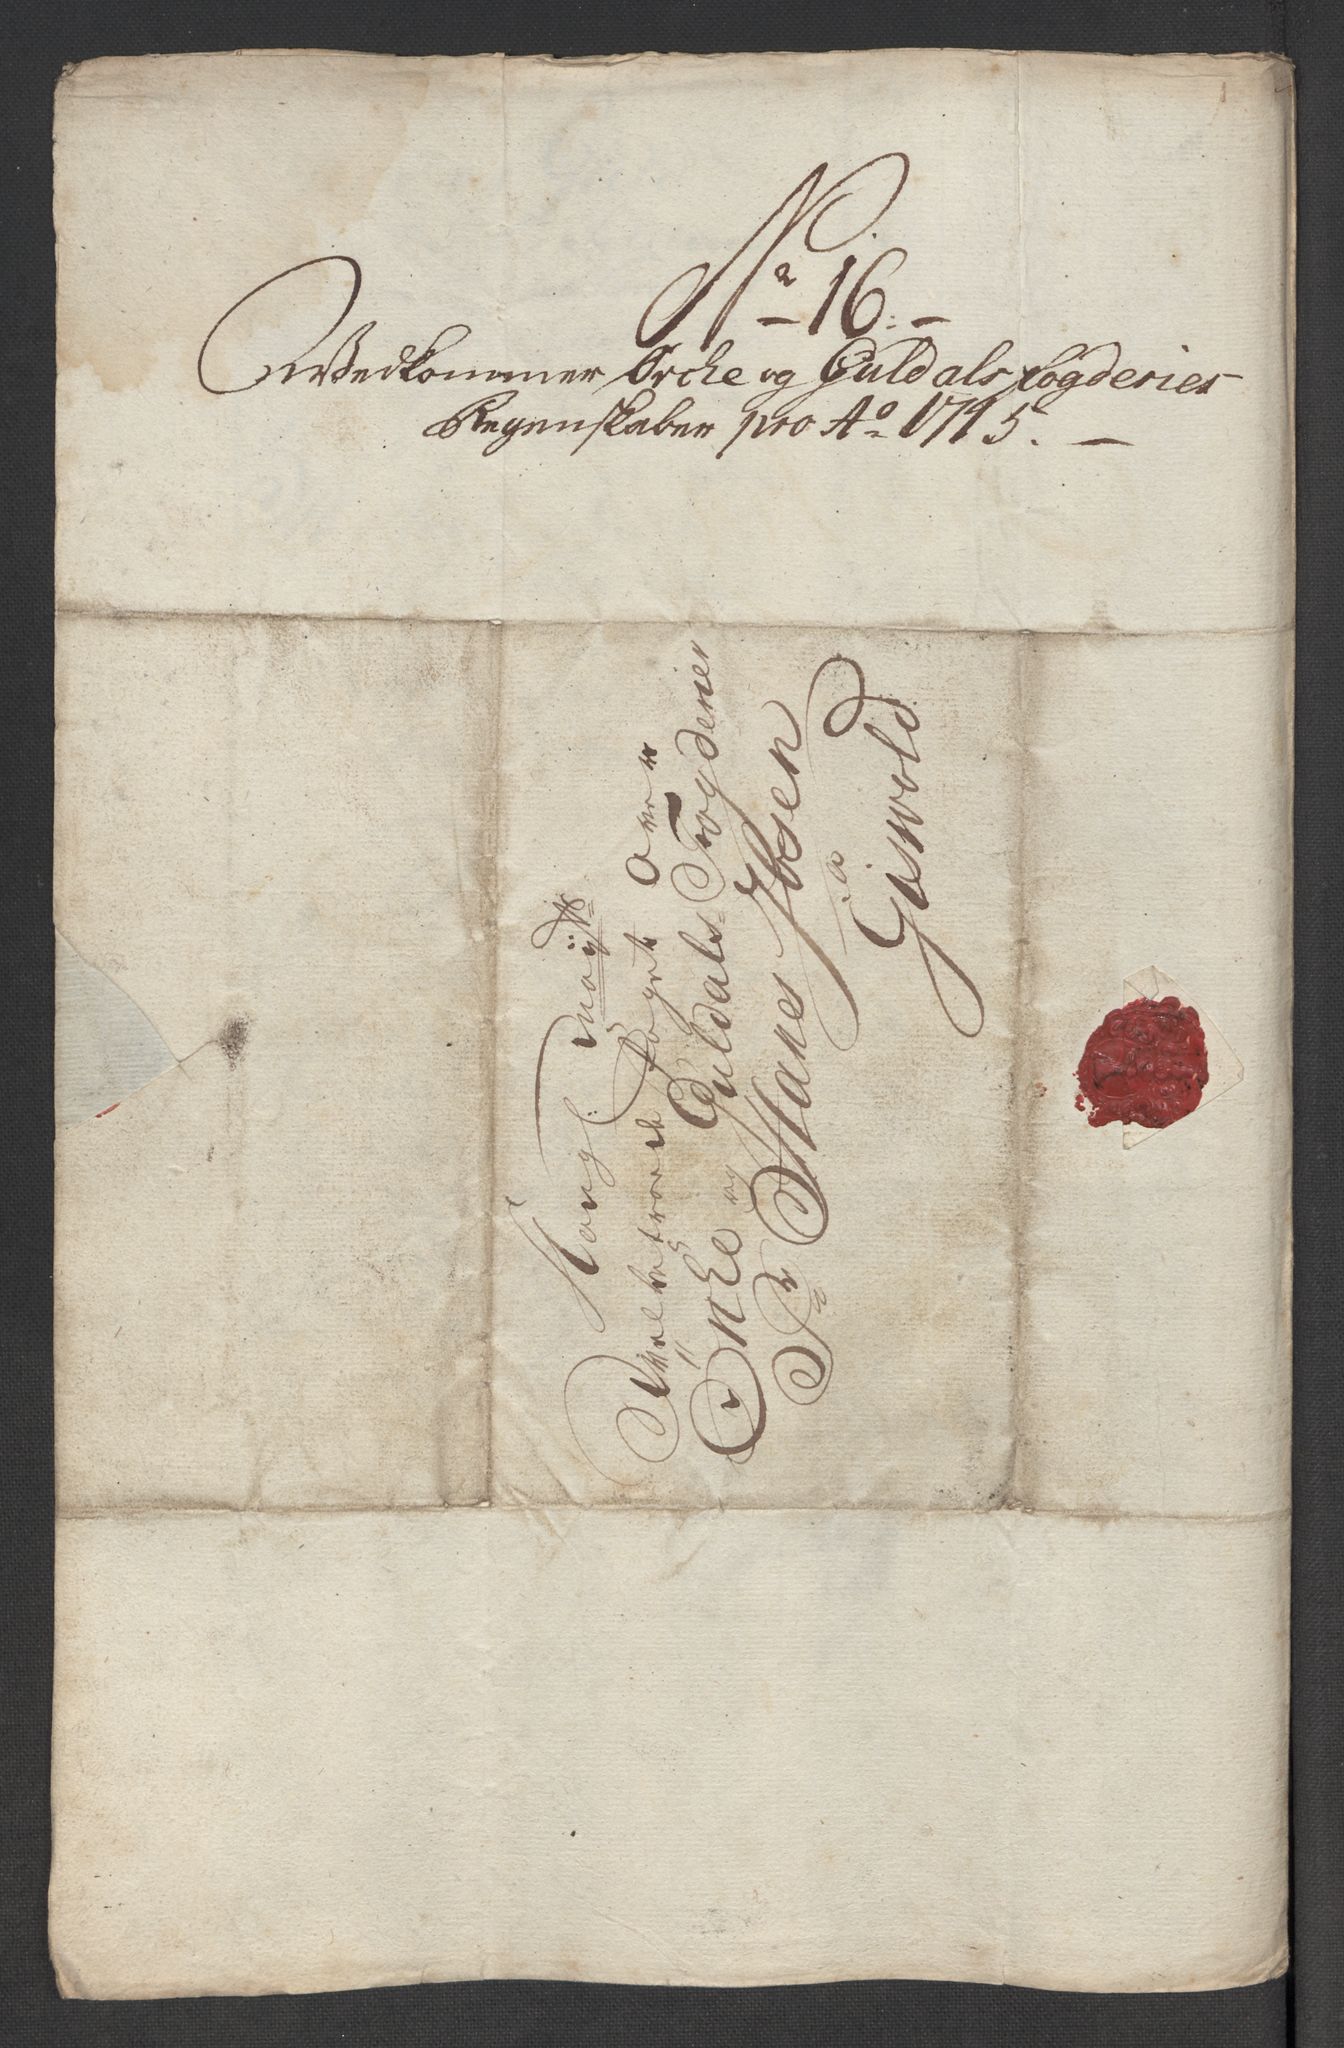 No 16.
Vedkommer Orche og Guldals fogderies
Regenskaber pro Ao 1715.
Kongl: Mayts
Velbetroede foget Over
Örke og Guldals Fogderier
Sr Hanes Ibsen
a
Giswold